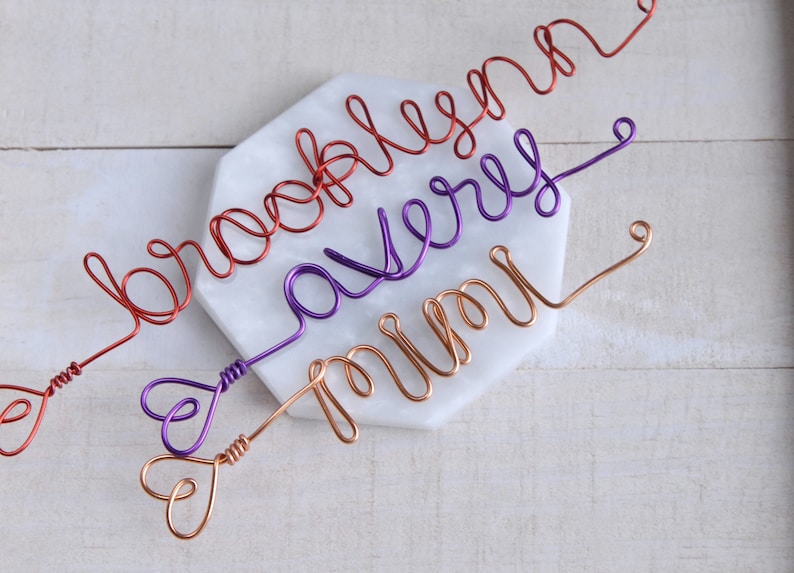 brooklynn
avery
mimi